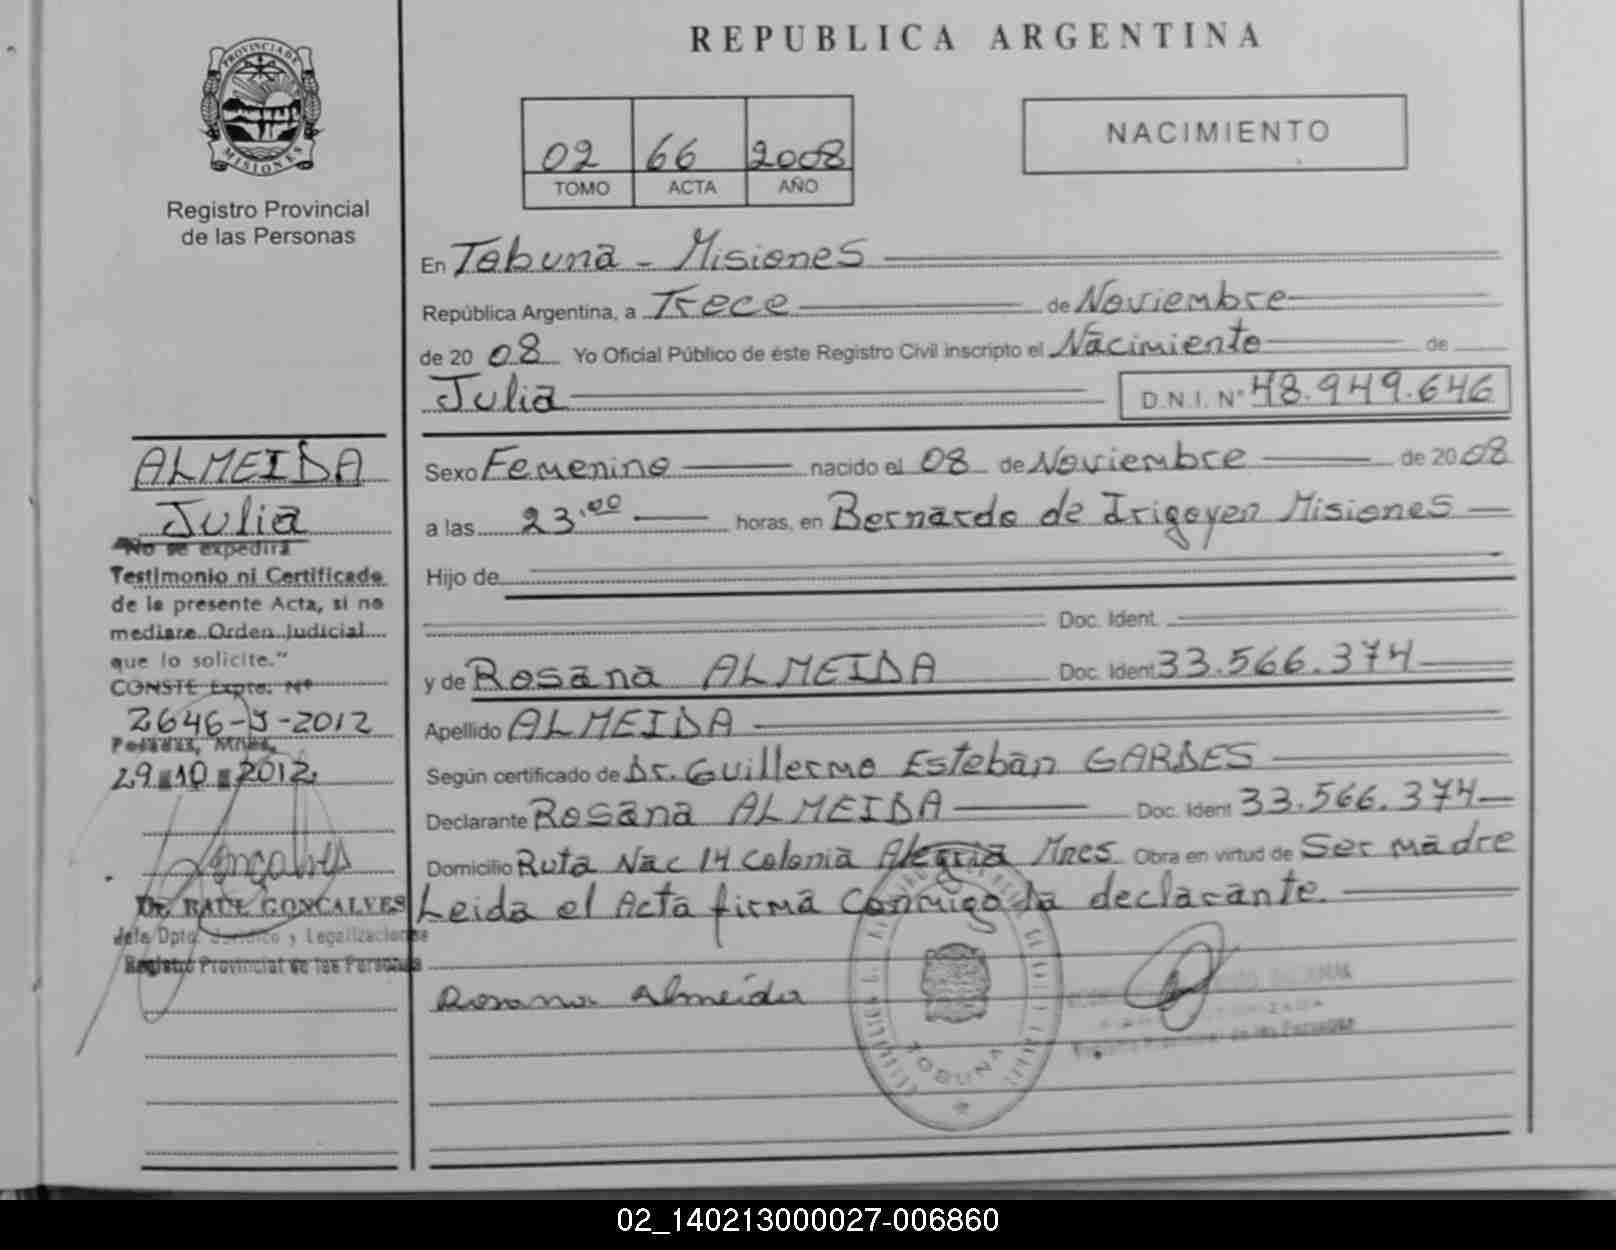 REPUBLICA ARGENTINA
PROVINCIA DE
MISIONES
Registro Provincial
de las Personas
02 66 2008
TOMO ACTA AÑO
NACIMIENTO
En Tobuna - Misiones
República Argentina, a Trece de Noviembre
de 20 08 Yo Oficial Público de éste Registro Civil inscripto el Nacimiento de
Julia D.N.I. Nº 48.949.646
Sexo Femenino nacido el 08 de Noviembre de 20 08
a las 23.00 horas, en Bernardo de Irigoyen Misiones
Hijo de
Doc. Ident.
y de Rosana ALMEIDA Doc. Ident 33.566.374
Apellido ALMEIDA
Según certificado de Dr. Guillermo Esteban GARDES
Declarante Rosana ALMEIDA Doc. Ident 33.566.374
Domicilio Ruta Nac 14 Colonia Alegria Mnes Obra en virtud de Ser madre
Leida el Acta firma conmigo la declarante.
Rosana Almeida
TOBUNA
ALMEIDA
Julia
"No se expedirá
Testimonio ni Certificado
de la presente Acta, si no
mediare Orden Judicial
que lo solicite."
CONSTE Expte. Nº
2646-J-2012
Posadas, Mnes,
29 10 2012
Goncalves
Dr. RAUL GONCALVES
Jefe Dpto. Jurídico y Legalizaciones
Registro Provincial de las Personas
02_140213000027-006860